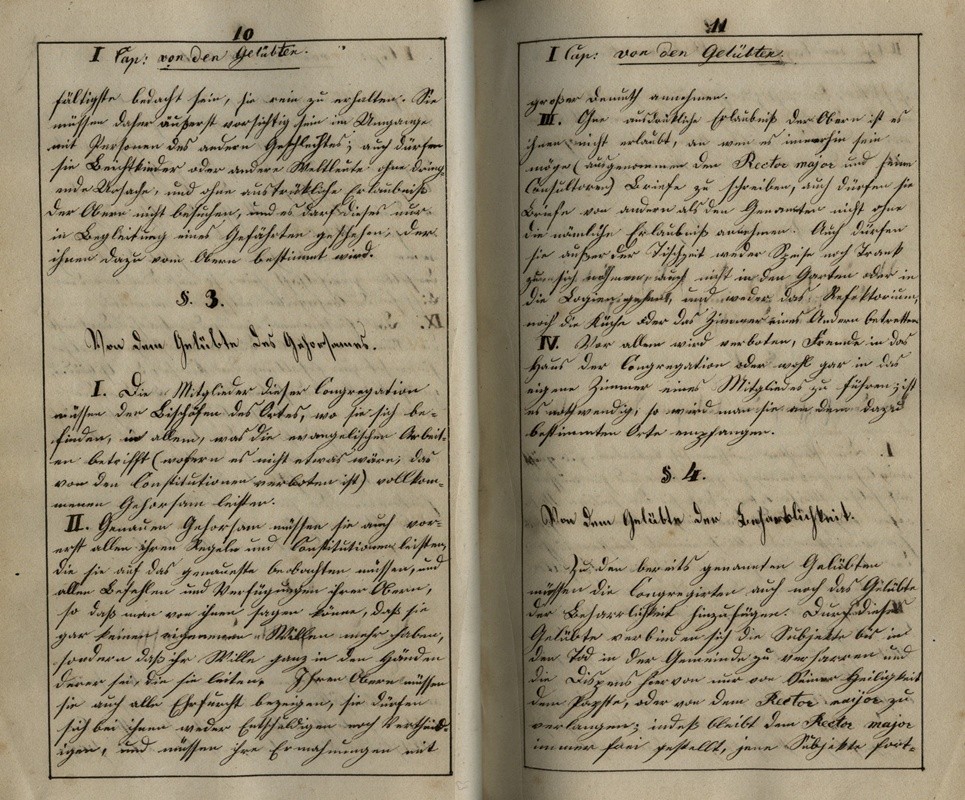 10
I Cap: von den Gelübten.
fältigste bedacht sein, sie rein zu erhalten. Sie
müssen daher äußerst vorsichtig sein im Umgange
mit Personen des andern Geschlechtes; auch dürfen
sie Beichtkinder oder andere Weltleute ohne dring-
ende Ursache, und ohne ausdrükliche Erlaubniß
der Obern nicht besuchen, und es darf dieses nur
in Begleitung eines Gefährten geschehen, der
ihnen dazu vom Obern bestimmt wird.
§. 3.
Von dem Gelübte des Gehorsames.
I. Die Mitglieder dieser Congregation
müssen den Bischöfen des Ortes, wo sie sich be-
finden, in allem, was die evangelischen Arbeit-
en betrifft (wofern es nicht etwas wäre, das
von den Constitutionen verboten ist) vollkom-
menen Gehorsam leisten.
II. Genauen Gehorsam müssen sie auch vor-
erst allen ihren Regeln und Constitutionen leisten,
die sie auf das genaueste beobachten müssen, und
allen Befehlen und Verfügungen ihrer Obern,
so daß man von ihnen sagen könne, daß sie
gar keinen eigenen Willen mehr haben,
sondern daß ihr Wille ganz in den Händen
derer sei, die sie leiten. Ihren Obern müssen
sie auch alle Ehrfurcht bezeigen, sie dürfen
sich bei ihnen weder Entschuldigen noch Vertheid-
igen, und müssen ihre Ermahnungen mit
11
I Cap: von den Gelübten.
großer Demuth annehmen.
III. Ohne ausdrükliche Erlaubniß der Obern ist es
ihnen nicht erlaubt, an wen es immerhin sein
möge (ausgenommen den Rector major und seine
Consultoren) Briefe zu schreiben, auch dürfen sie
Briefe von andern als den Genannten nicht ohne
die nämliche Erlaubniß annehmen. Auch dürfen
sie außer der Tischzeit weder Speise noch Trank
zu sich nehmen, auch nicht in den Garten oder in
die Logien gehen, und weder das Refektorium,
noch die Küche oder das Zimmer eines Andern betretten.
IV. Vor allem wird verboten, Fremde in das
Haus der Congregation oder wohl gar in das
eigene Zimmer eines Mitgliedes zu führen; ist
es nothwendig, so wird man sie an dem dazu
bestimmten Orte empfangen.
§. 4.
Von dem Gelübte der Beharrlichkeit.
Zu den bereits genannten Gelübten
müssen die Congregirten auch noch das Gelübte
der Beharrlichkeit hinzufügen. Durch dieses
Gelübte verbinden sich die Subjekte bis in
den Tod in der Gemeinde zu verharren und
die Dispens hiervon nur von Seiner Heiligkeit
dem Papste, oder von dem Rector major zu
verlangen; indeß bleibt dem Rector major
immer frei gestellt, jene Subjekte fort-